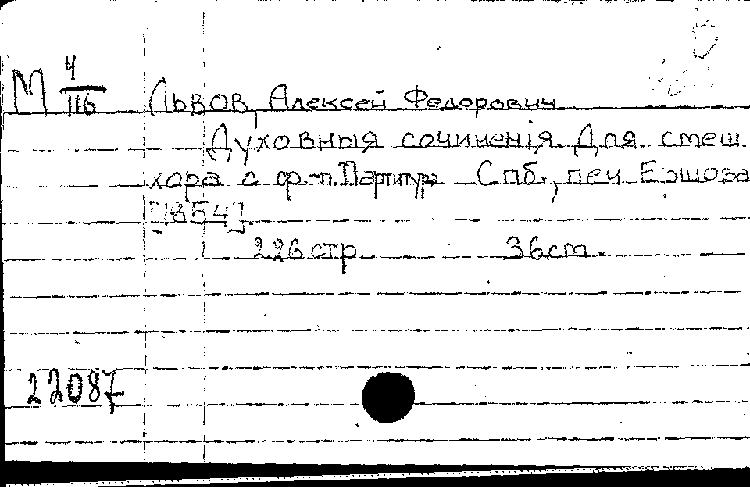 М 4/116 Львов, Алексей Федорович
Духовныя сочиненія. Для смеш.
хора с ф-п. Партитура Спб., печ. Ершова
[1854].
226 стр. 36 cm.
22087